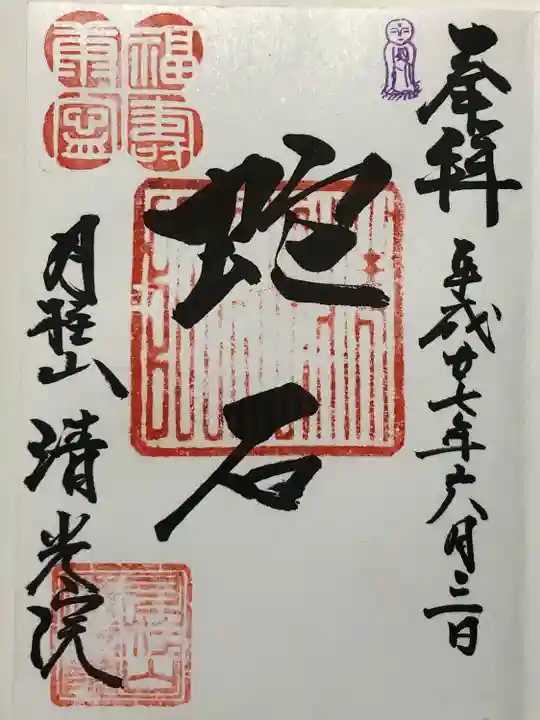 奉拝
平成廿七年六月三日
蛇石
月桂山 清光院
福壽康寧